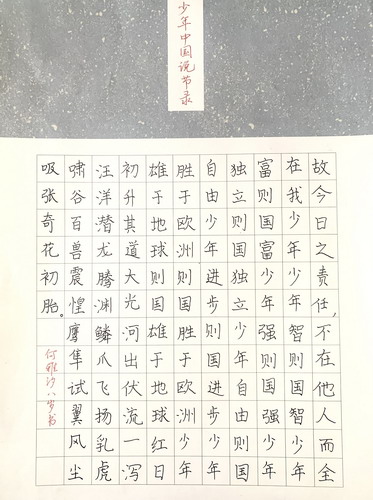 少年中国说节录
故今日之责任,不在他人而全
在我少年少年智则国智少年
富则国富少年强则国强少年
独立则国独立少年自由则国
自由少年进步则国进步少年
胜于欧洲则国胜于欧洲少年
雄于地球则国雄于地球红日
初升其道大光河出伏流一泻
汪洋潜龙腾渊鳞爪飞扬乳虎
啸谷百兽震惶鹰隼试翼风尘
吸张奇花初胎。
何雅汐八岁书